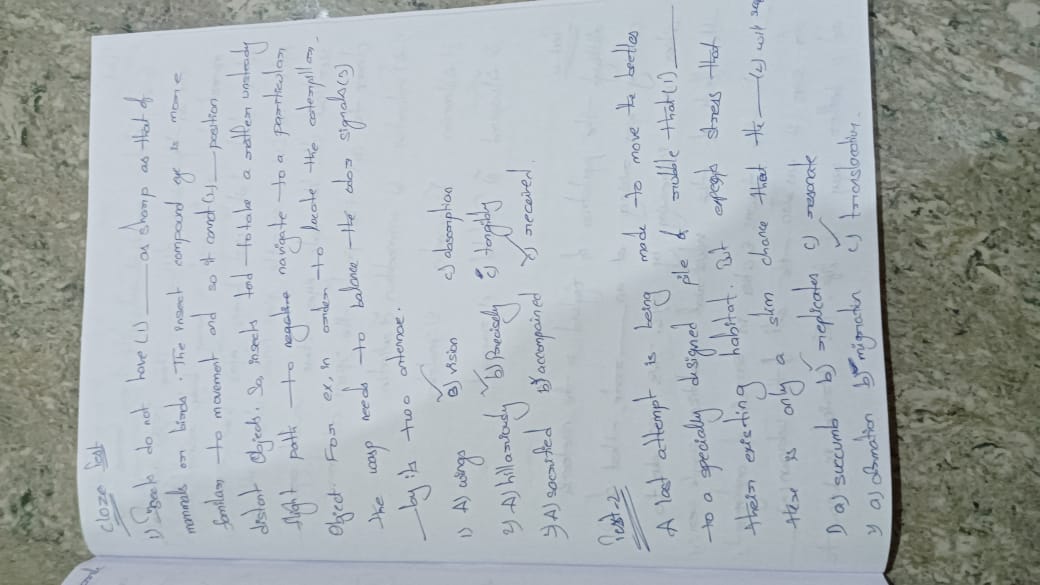 cloze Test
1) Insects do not have (1) ___ as sharp as that of
mammals or birds. The insect compound eye is more
familiar to movement and so it cannot (2) ___ position
distant objects. So, insects tend to take a rather unsteady
flight path to navigate to a particular
object. For ex, in order to locate the caterpillar.
the wasp needs to balance the odor signals (3)
___ by its two antennae.
1) A) wings B) vision c) absorption
2) A) hillariously b) Precisely c) tangibly
3) A) sacrified b) accompained c) received.
Test-2
A last attempt is being made to move the beetles
to a specially designed pile of rubble that (1) ___
their existing habitat. But experts stress that
there is only a slim chance that the ___ (2) will
1) a) succumb b) replicates c) resonate
2) a) domation b) migration c) translocation.